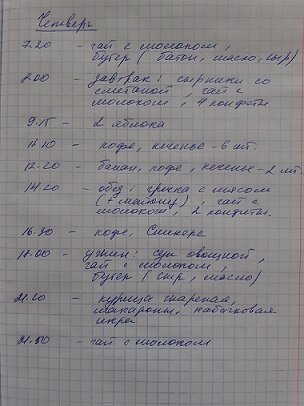 Четверг
7.20 - чай с молоком,
бутер (батон, масло, сыр)
9.00 - завтрак: сырники со
сметаной, чай с
молоком, 4 конфеты
9.15 - 2 яблока
11.10 - кофе, печенье - 6 шт.
12.20 - банан, кофе, печенье - 2 шт.
14.20 - обед: гречка с мясом
(+ майонез), чай с
молоком, 2 конфеты.
16.30 - кофе, Сникерс
18.00 - ужин: суп овощной,
чай с молоком,
бутер (сыр, масло)
21.20 - курица жареная,
макароны, кабачковая
икра
21.50 - чай с молоком